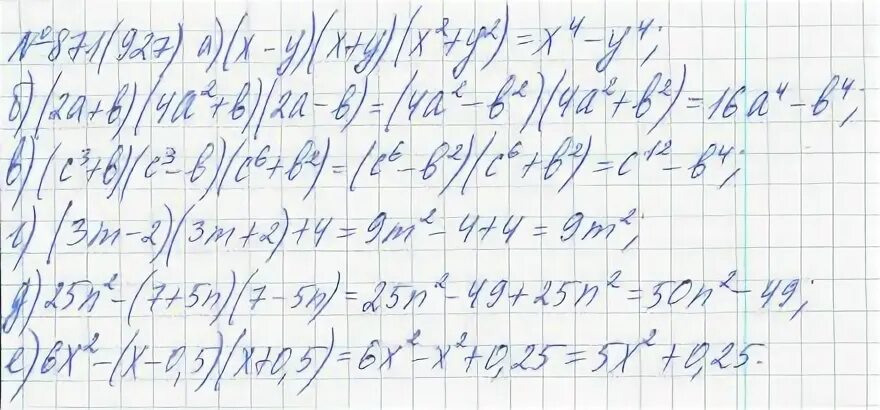 №871(927) а) (x-y)(x+y)(x²+y²)=x⁴-y⁴;
б) (2a+b)(4a²+b)(2a-b)=(4a²-b²)(4a²+b²)=16a⁴-b⁴;
в) (c³+b)(c³-b)(c⁶+b²)=(c⁶-b²)(c⁶+b²)=c¹²-b⁴;
г) (3m-2)(3m+2)+4=9m²-4+4=9m²;
д) 25n²-(7+5n)(7-5n)=25n²-49+25n²=50n²-49;
е) 6x²-(x-0,5)(x+0,5)=6x²-x²+0,25=5x²+0,25.